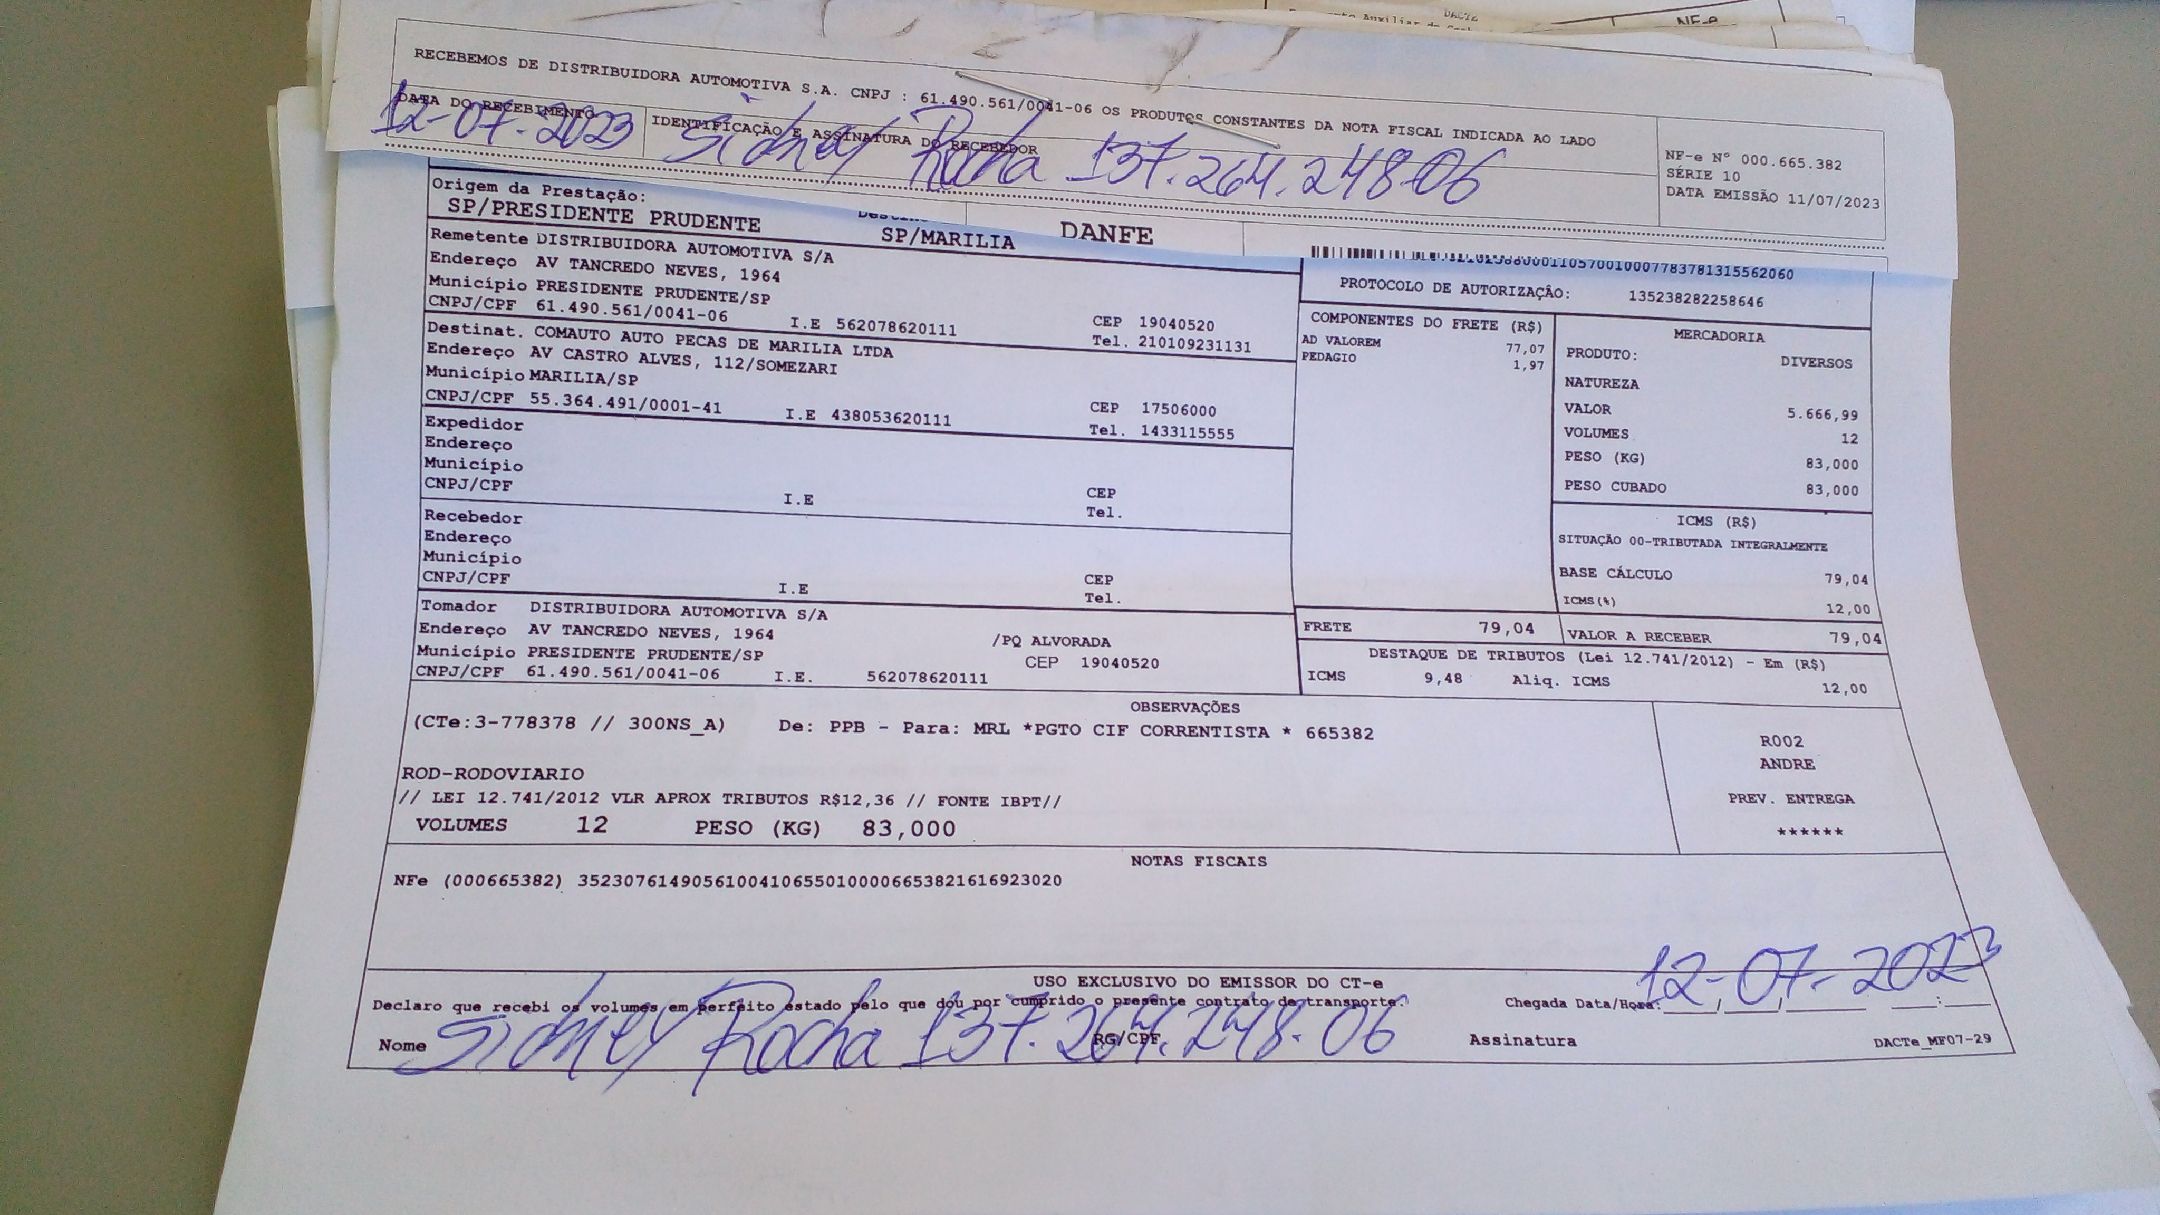 DACTE
NF-e
RECEBEMOS DE DISTRIBUIDORA AUTOMOTIVA S.A. CNPJ : 61.490.561/0041-06 OS PRODUTOS CONSTANTES DA NOTA FISCAL INDICADA AO LADO
DATA DO RECEBIMENTO
IDENTIFICAÇÃO E ASSINATURA DO RECEBEDOR
12-07-2023 Sidney Rocha 137.264.248-06
NF-e Nº 000.665.382
SÉRIE 10
DATA EMISSÃO 11/07/2023
Origem da Prestação:
SP/PRESIDENTE PRUDENTE
SP/MARILIA
DANFE
Remetente DISTRIBUIDORA AUTOMOTIVA S/A
Endereço AV TANCREDO NEVES, 1964
Município PRESIDENTE PRUDENTE/SP
CNPJ/CPF 61.490.561/0041-06 I.E 562078620111
CEP 19040520
Tel. 210109231131
PROTOCOLO DE AUTORIZAÇÃO: 135238282258646
Destinat. COMAUTO AUTO PECAS DE MARILIA LTDA
Endereço AV CASTRO ALVES, 112/SOMEZARI
Município MARILIA/SP
CNPJ/CPF 55.364.491/0001-41 I.E 438053620111
CEP 17506000
Tel. 1433115555
Expedidor
Endereço
Município
CNPJ/CPF I.E
CEP
Tel.
Recebedor
Endereço
Município
CNPJ/CPF I.E
CEP
Tel.
Tomador DISTRIBUIDORA AUTOMOTIVA S/A
Endereço AV TANCREDO NEVES, 1964 /PQ ALVORADA
Município PRESIDENTE PRUDENTE/SP CEP 19040520
CNPJ/CPF 61.490.561/0041-06 I.E. 562078620111
COMPONENTES DO FRETE (R$)
AD VALOREM 77,07
PEDAGIO 1,97
MERCADORIA
PRODUTO: DIVERSOS
NATUREZA
VALOR 5.666,99
VOLUMES 12
PESO (KG) 83,000
PESO CUBADO 83,000
ICMS (R$)
SITUAÇÃO 00-TRIBUTADA INTEGRALMENTE
BASE CÁLCULO 79,04
ICMS(%) 12,00
FRETE 79,04
VALOR A RECEBER 79,04
DESTAQUE DE TRIBUTOS (Lei 12.741/2012) - Em (R$)
ICMS 9,48 Aliq. ICMS 12,00
OBSERVAÇÕES
(CTe:3-778378 // 300NS_A) De: PPB - Para: MRL *PGTO CIF CORRENTISTA * 665382
ROD-RODOVIARIO
// LEI 12.741/2012 VLR APROX TRIBUTOS R$12,36 // FONTE IBPT//
VOLUMES 12 PESO (KG) 83,000
R002
ANDRE
PREV. ENTREGA
******
NOTAS FISCAIS
NFe (000665382) 35230761490561004106550100006653821616923020
USO EXCLUSIVO DO EMISSOR DO CT-e
Declaro que recebi os volumes em perfeito estado pelo que dou por cumprido o presente contrato de transporte.
Chegada Data/Hora: 12-07-2023
Nome Sidney Rocha RG/CPF 137.264.248-06 Assinatura
DACTe_MF07-29